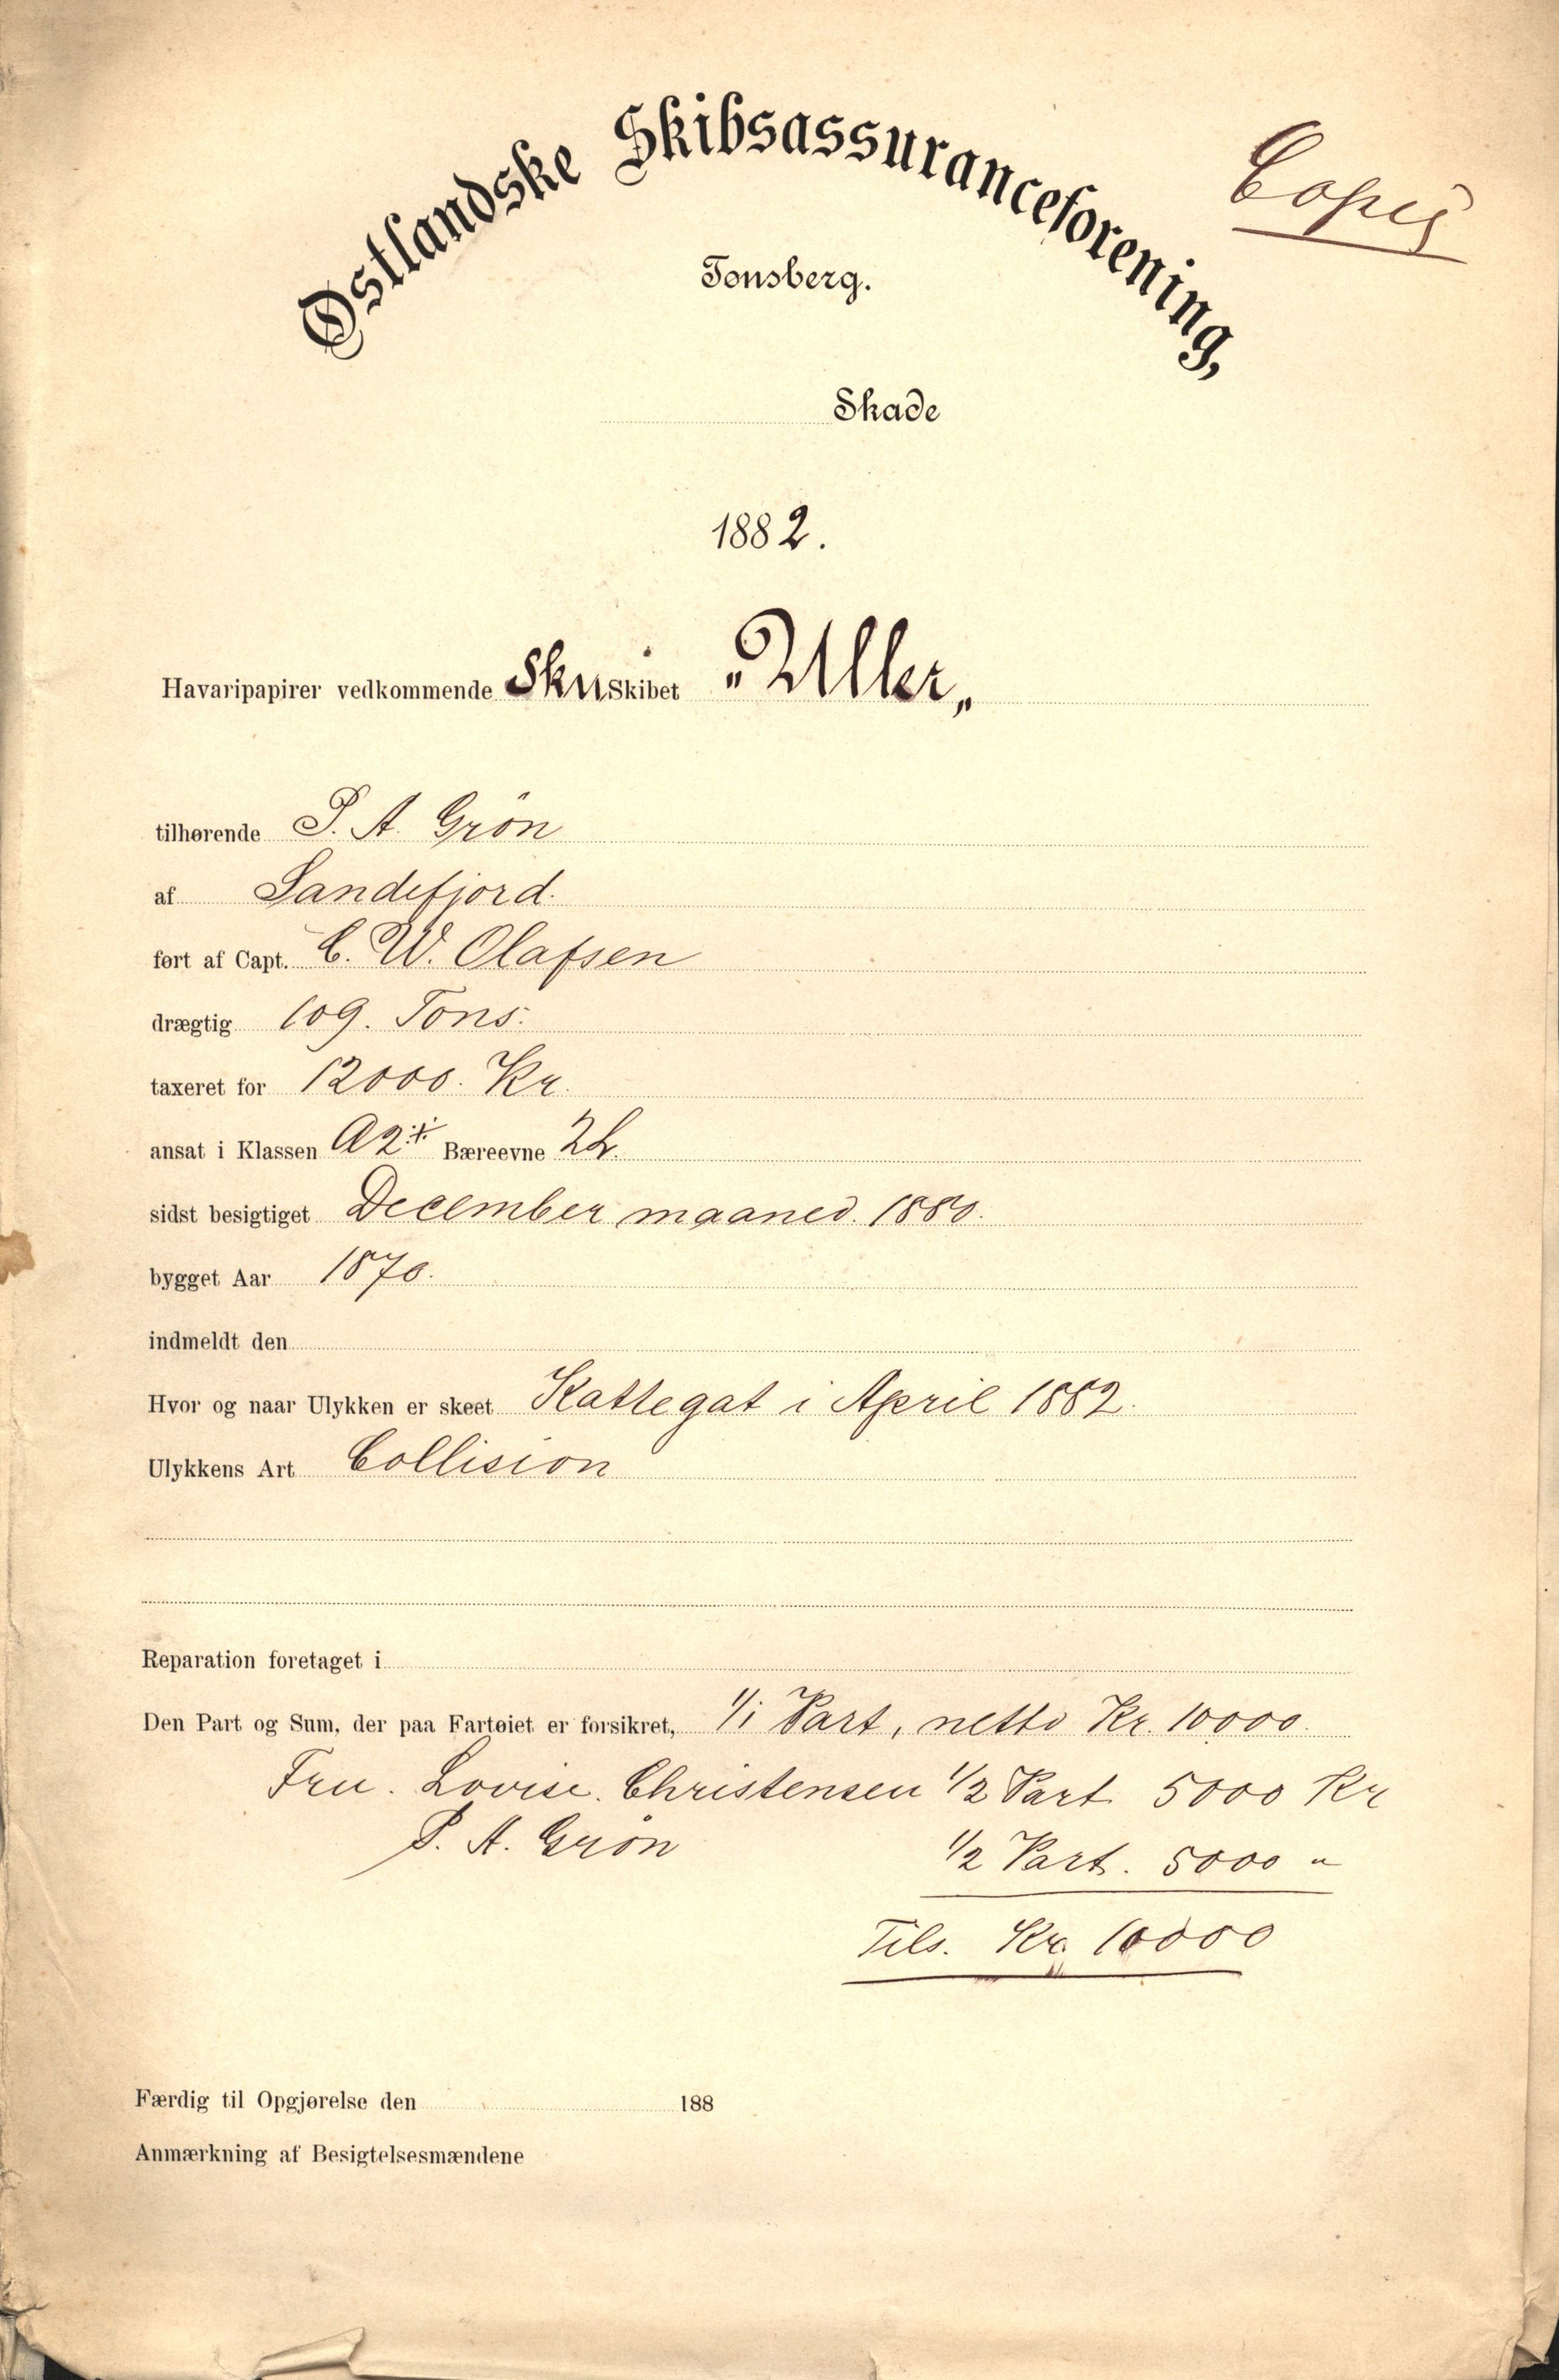 Copi
Østlandske Skibsassuranceforening,
Tønsberg.
Skade
1882.
Havaripapirer vedkommende Sku Skibet "Uller"
tilhørende P. A. Grøn
af Sandefjord.
ført af Capt. C. W. Olafsen
drægtig 109. Tons.
taxeret for 12000. Kr.
ansat i Klassen A2 Bæreevne 2
sidst besigtiget December maaned. 1880.
bygget Aar 1870.
indmeldt den
Hvor og naar Ulykken er skeet Kattegat i April 1882.
Ulykkens Art Collision
Reparation foretaget i
Den Part og Sum, der paa Fartøiet er forsikret, 1/1 Part, netto Kr. 10000.
Fru. Lovise. Christensen 1/2 Part 5000 Kr
P. A. Grøn 1/2 Part. 5000 "
Tils. Kr. 10000
Færdig til Opgjørelse den 188
Anmærkning af Besigtelsesmændene